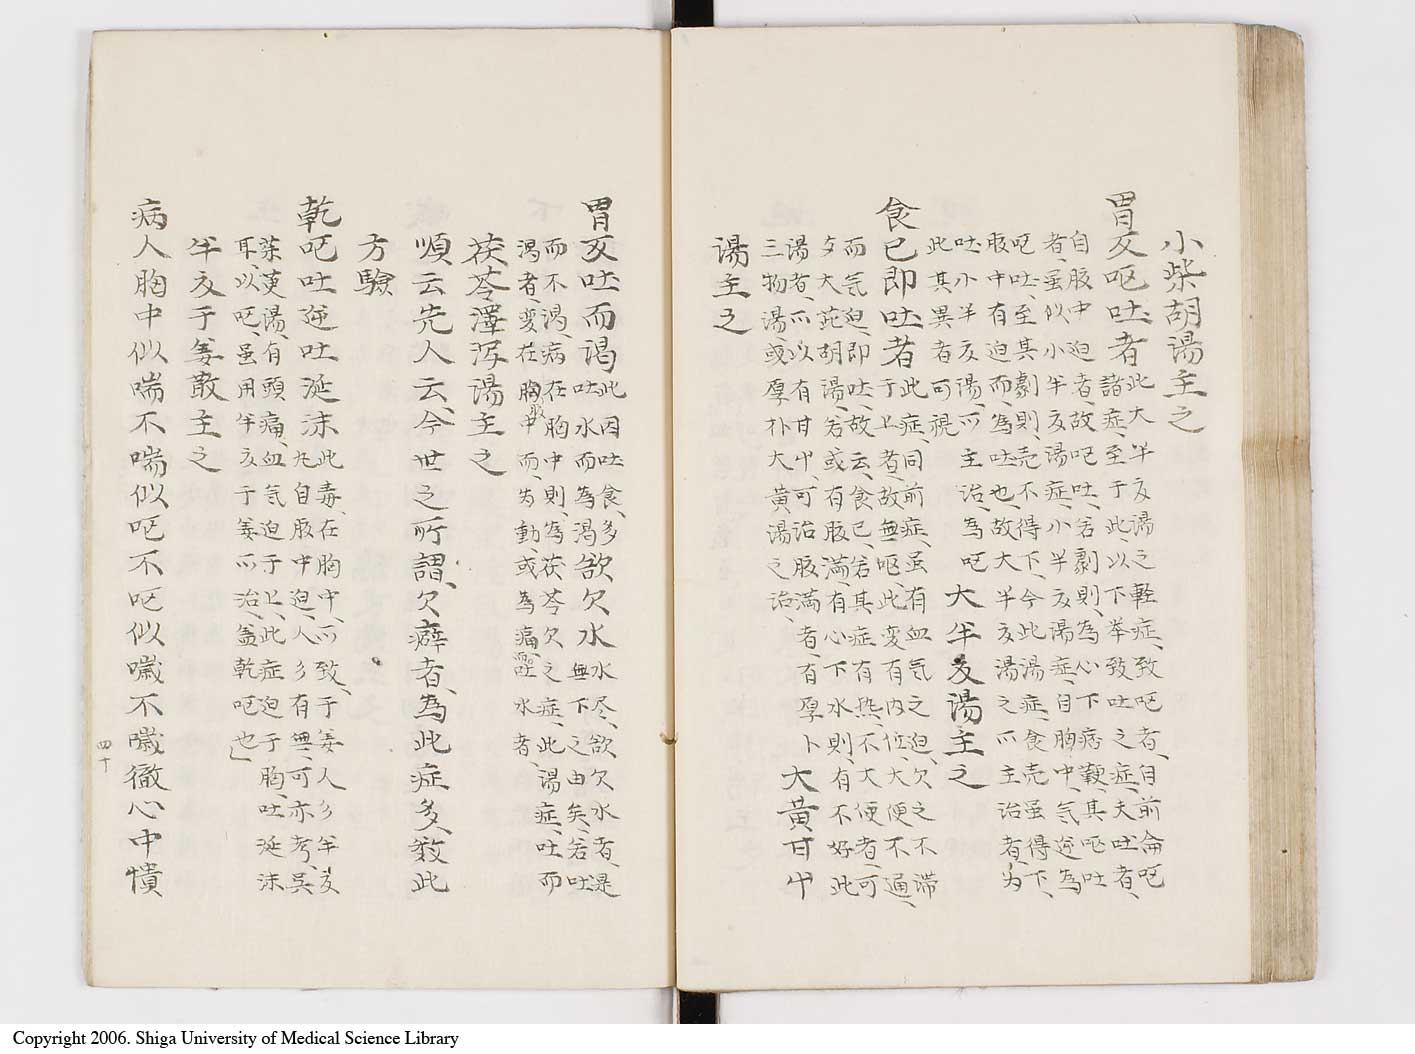 小柴胡湯主之
胃反呕吐者
此大半夏湯之軽症、致呕者、自前侖呕
諸症、至于此、以下挙致吐之症、夫吐者、
自腹中迫者、故呕吐、若劇則、為心下痞鞕、其呕吐
者、虽似小半夏湯症、小半夏湯症、自胸中、気逆為
呕吐、至其劇則、売不得下、今此湯症、食売虽得下、
腹中有迫而、為吐也、故大半夏湯之所主治者、为
吐、小半夏湯、所主治、為呕
此其異者可視
大半夏湯主之
食已即吐者
此症、同前症、虽有血気之迫、欠之不滞
于上者、故無呕、此変有内位、大便不通、
而気迫、即吐、故云、食已、若其症有热、不大便者、可
夕大茈胡湯、若或有腹満、有心下水則、有不好此
湯者、所以有甘屮、可治腹満者、有厚卜
三物湯、或厚朴大黄湯之治、
大黄甘屮
湯主之
胃反吐而渇
此因吐食、多
吐水而為渇
欲欠水
水尽、欲欠水者、是
無下之由矣、若吐
而不渇、病在胸中則、為茯苓欠之症、此湯症、吐而
渇者、変在胸腹中而、为動、或為痛、呕吐水者、
茯苓澤泻湯主之
順云先人云、今世之所謂、欠癖者、為此症多、救此
方驗
乾呕吐逆吐涎沫
此毒、在胸中、所致、于姜人彡半夏
九自腹中迫、人彡有無、可亦考、呉
茱萸湯、有頭痛、血気迫于上、此症迫于胸、吐涎沫
耳、以呕、虽用半夏于姜所治、盖乾呕也」
半夏于姜散主之
病人胸中似喘不喘似呕不呕似噦不噦徹心中憒
四十
Copyright 2006. Shiga University of Medical Science Library